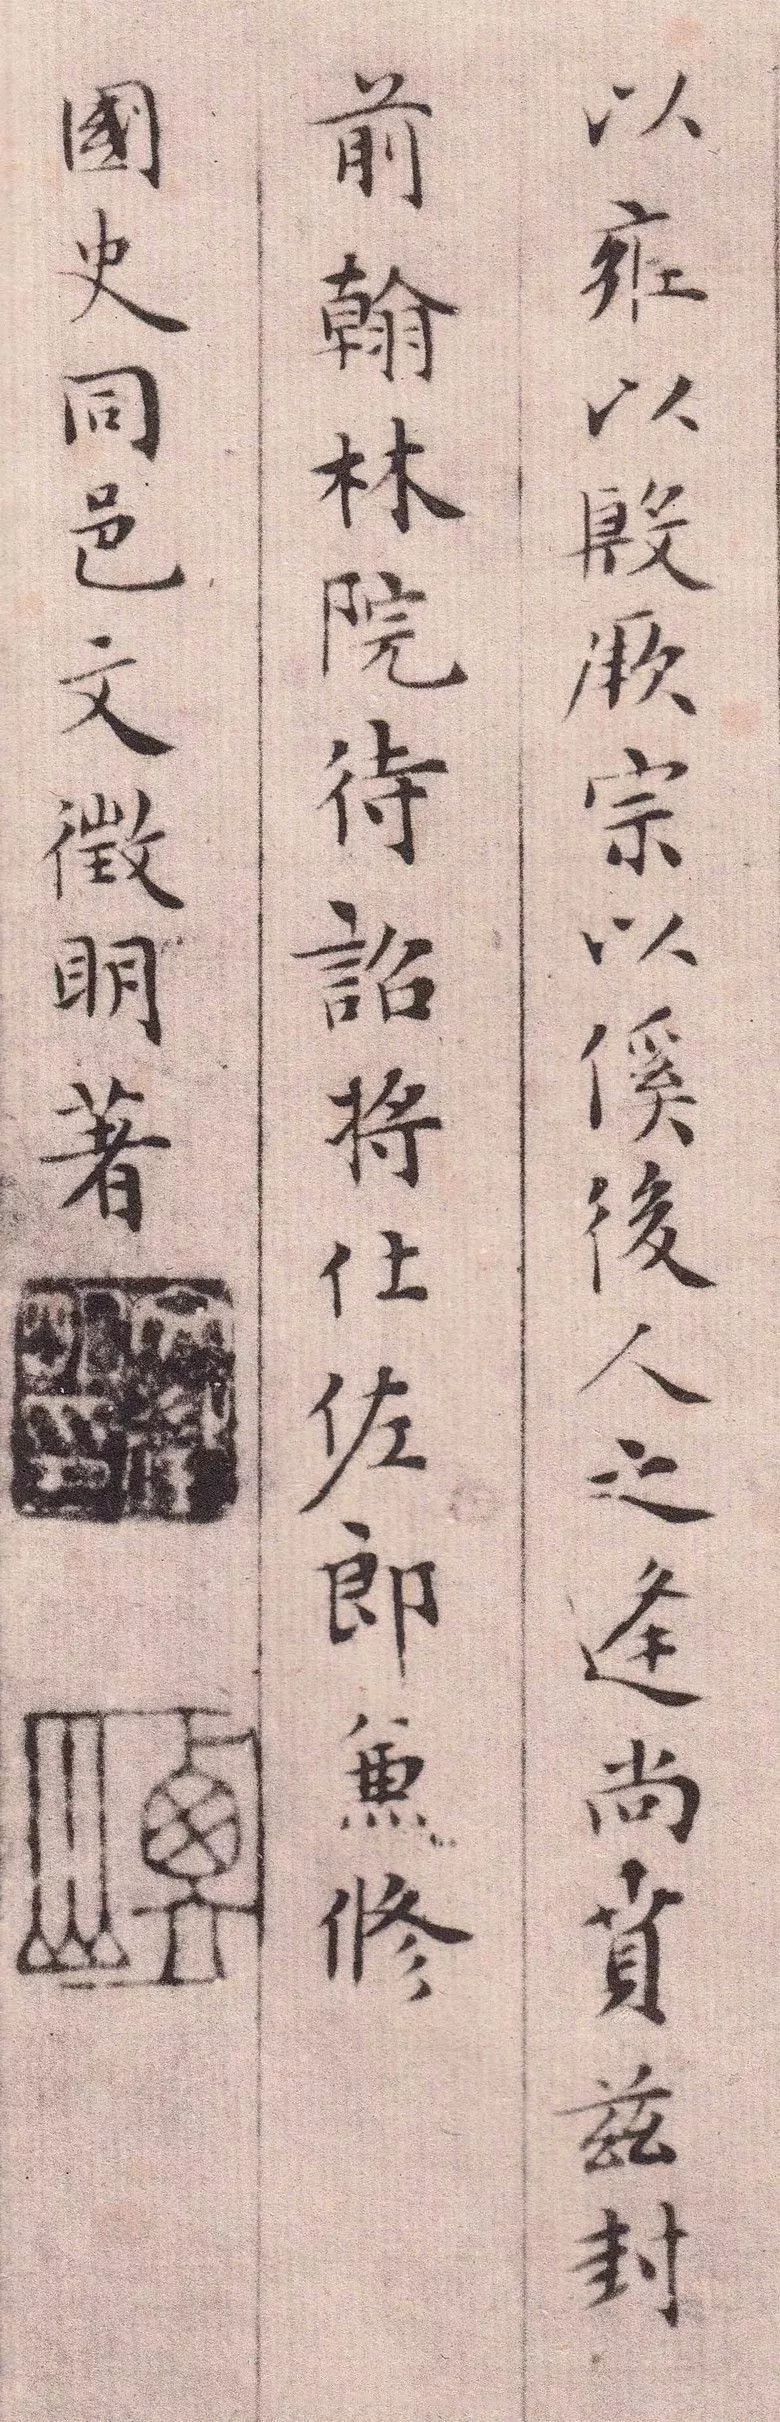 以雍以殷厥宗以傒後人之逢尚賁茲封
前翰林院待詔将仕佐郎兼修
國史同邑文徵明著